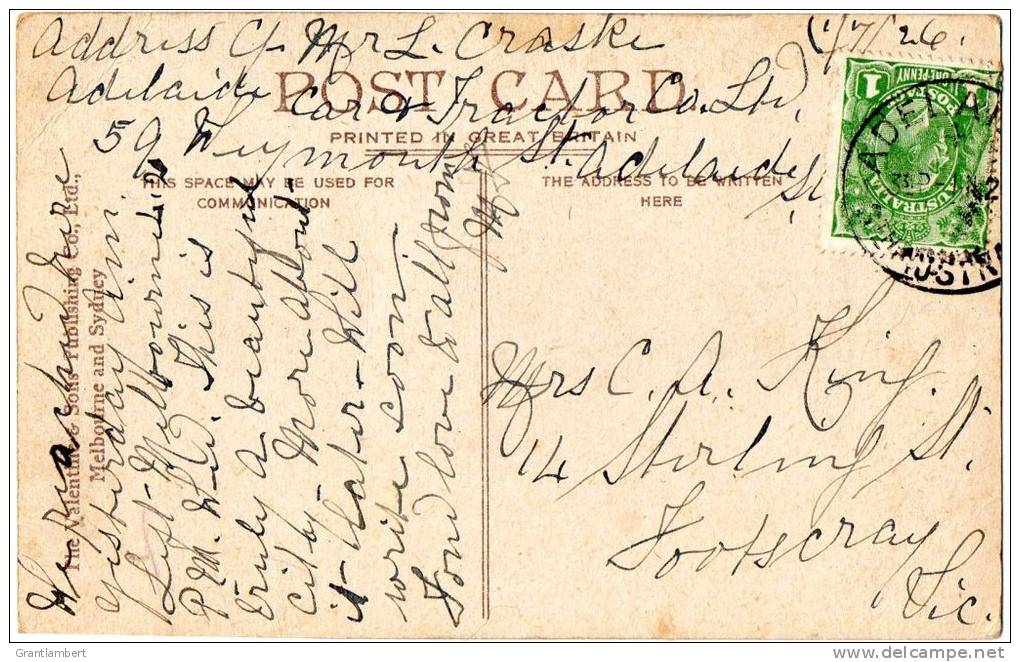 Address C/- Mr L. Craske
1/7/26.
Adelaide Car & Tractor Co. Ltd,
59 Weymouth St. Adelaide
POST CARD
PRINTED IN GREAT BRITAIN
THIS SPACE MAY BE USED FOR
COMMUNICATION
THE ADDRESS TO BE WRITTEN
HERE
The Valentine & Sons Publishing Co., Ltd.,
Melbourne and Sydney
We reached here
yesterday a.m.
Left Melbourne 4.
P.M. Wed. This is
truly a beautiful
city. More about
it later. Will
write soon
Fond love to all from
ONE PENNY
1
AUSTRALIA
ADELAI
Mrs C. A. King.
14 Stirling St.
Footscray
Vic.
Grantlambert
www.delcampe.net